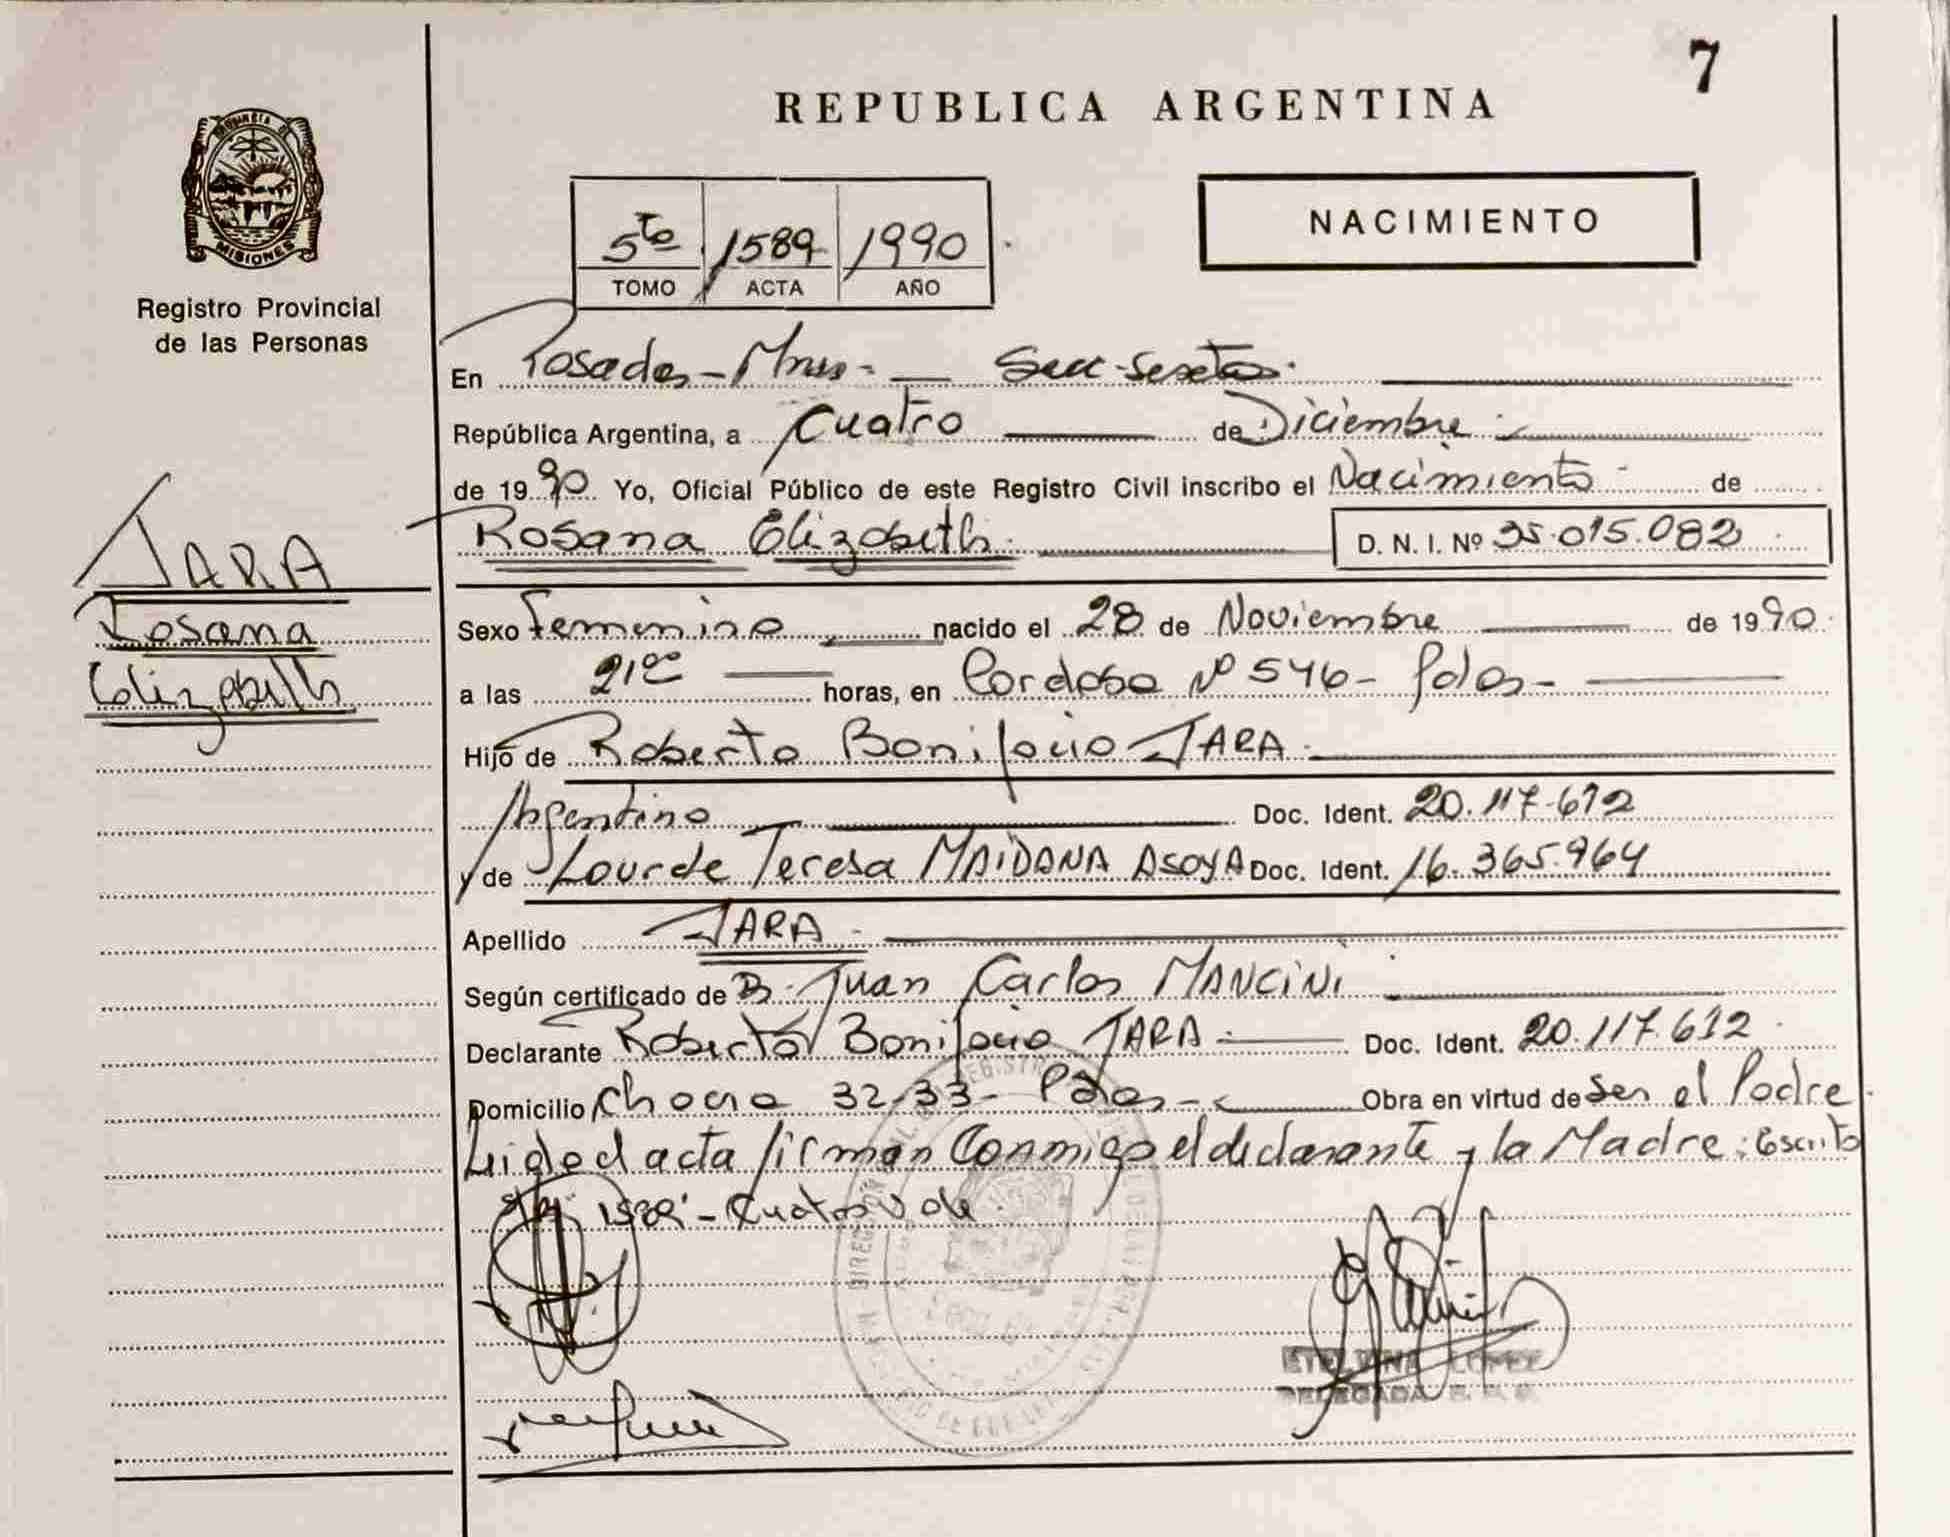 7
REPUBLICA ARGENTINA
PROVINCIA DE
MISIONES
Registro Provincial
de las Personas
NACIMIENTO
5to 1589 1990
TOMO ACTA AÑO
En Posadas - Mnes - Secc. Sexta.
República Argentina, a Cuatro de Diciembre
de 1990 Yo, Oficial Público de este Registro Civil inscribo el Nacimiento de
Rosana Elizabeth D. N. I. Nº 35.015.082
JARA
Rosana
Elizabeth
Sexo Femenino nacido el 28 de Noviembre de 1990
a las 21oo horas, en Cordoba Nº 546 - Pdas -
Hijo de Roberto Bonifacio JARA
Argentino Doc. Ident. 20.117.612
y de Lourde Teresa MAIDANA ASOYA Doc. Ident. 16.365.964
Apellido JARA
Según certificado de Dr. Juan Carlos MANCINI
Declarante Roberto Bonifacio JARA Doc. Ident. 20.117.612
Domicilio Chacra 32-33 - Pdas - Obra en virtud de Ser el Padre
Leida el acta firman Conmigo el declarante y la Madre: Escrito
1589 - Cuatro de
LOPEZ
DELEGADA